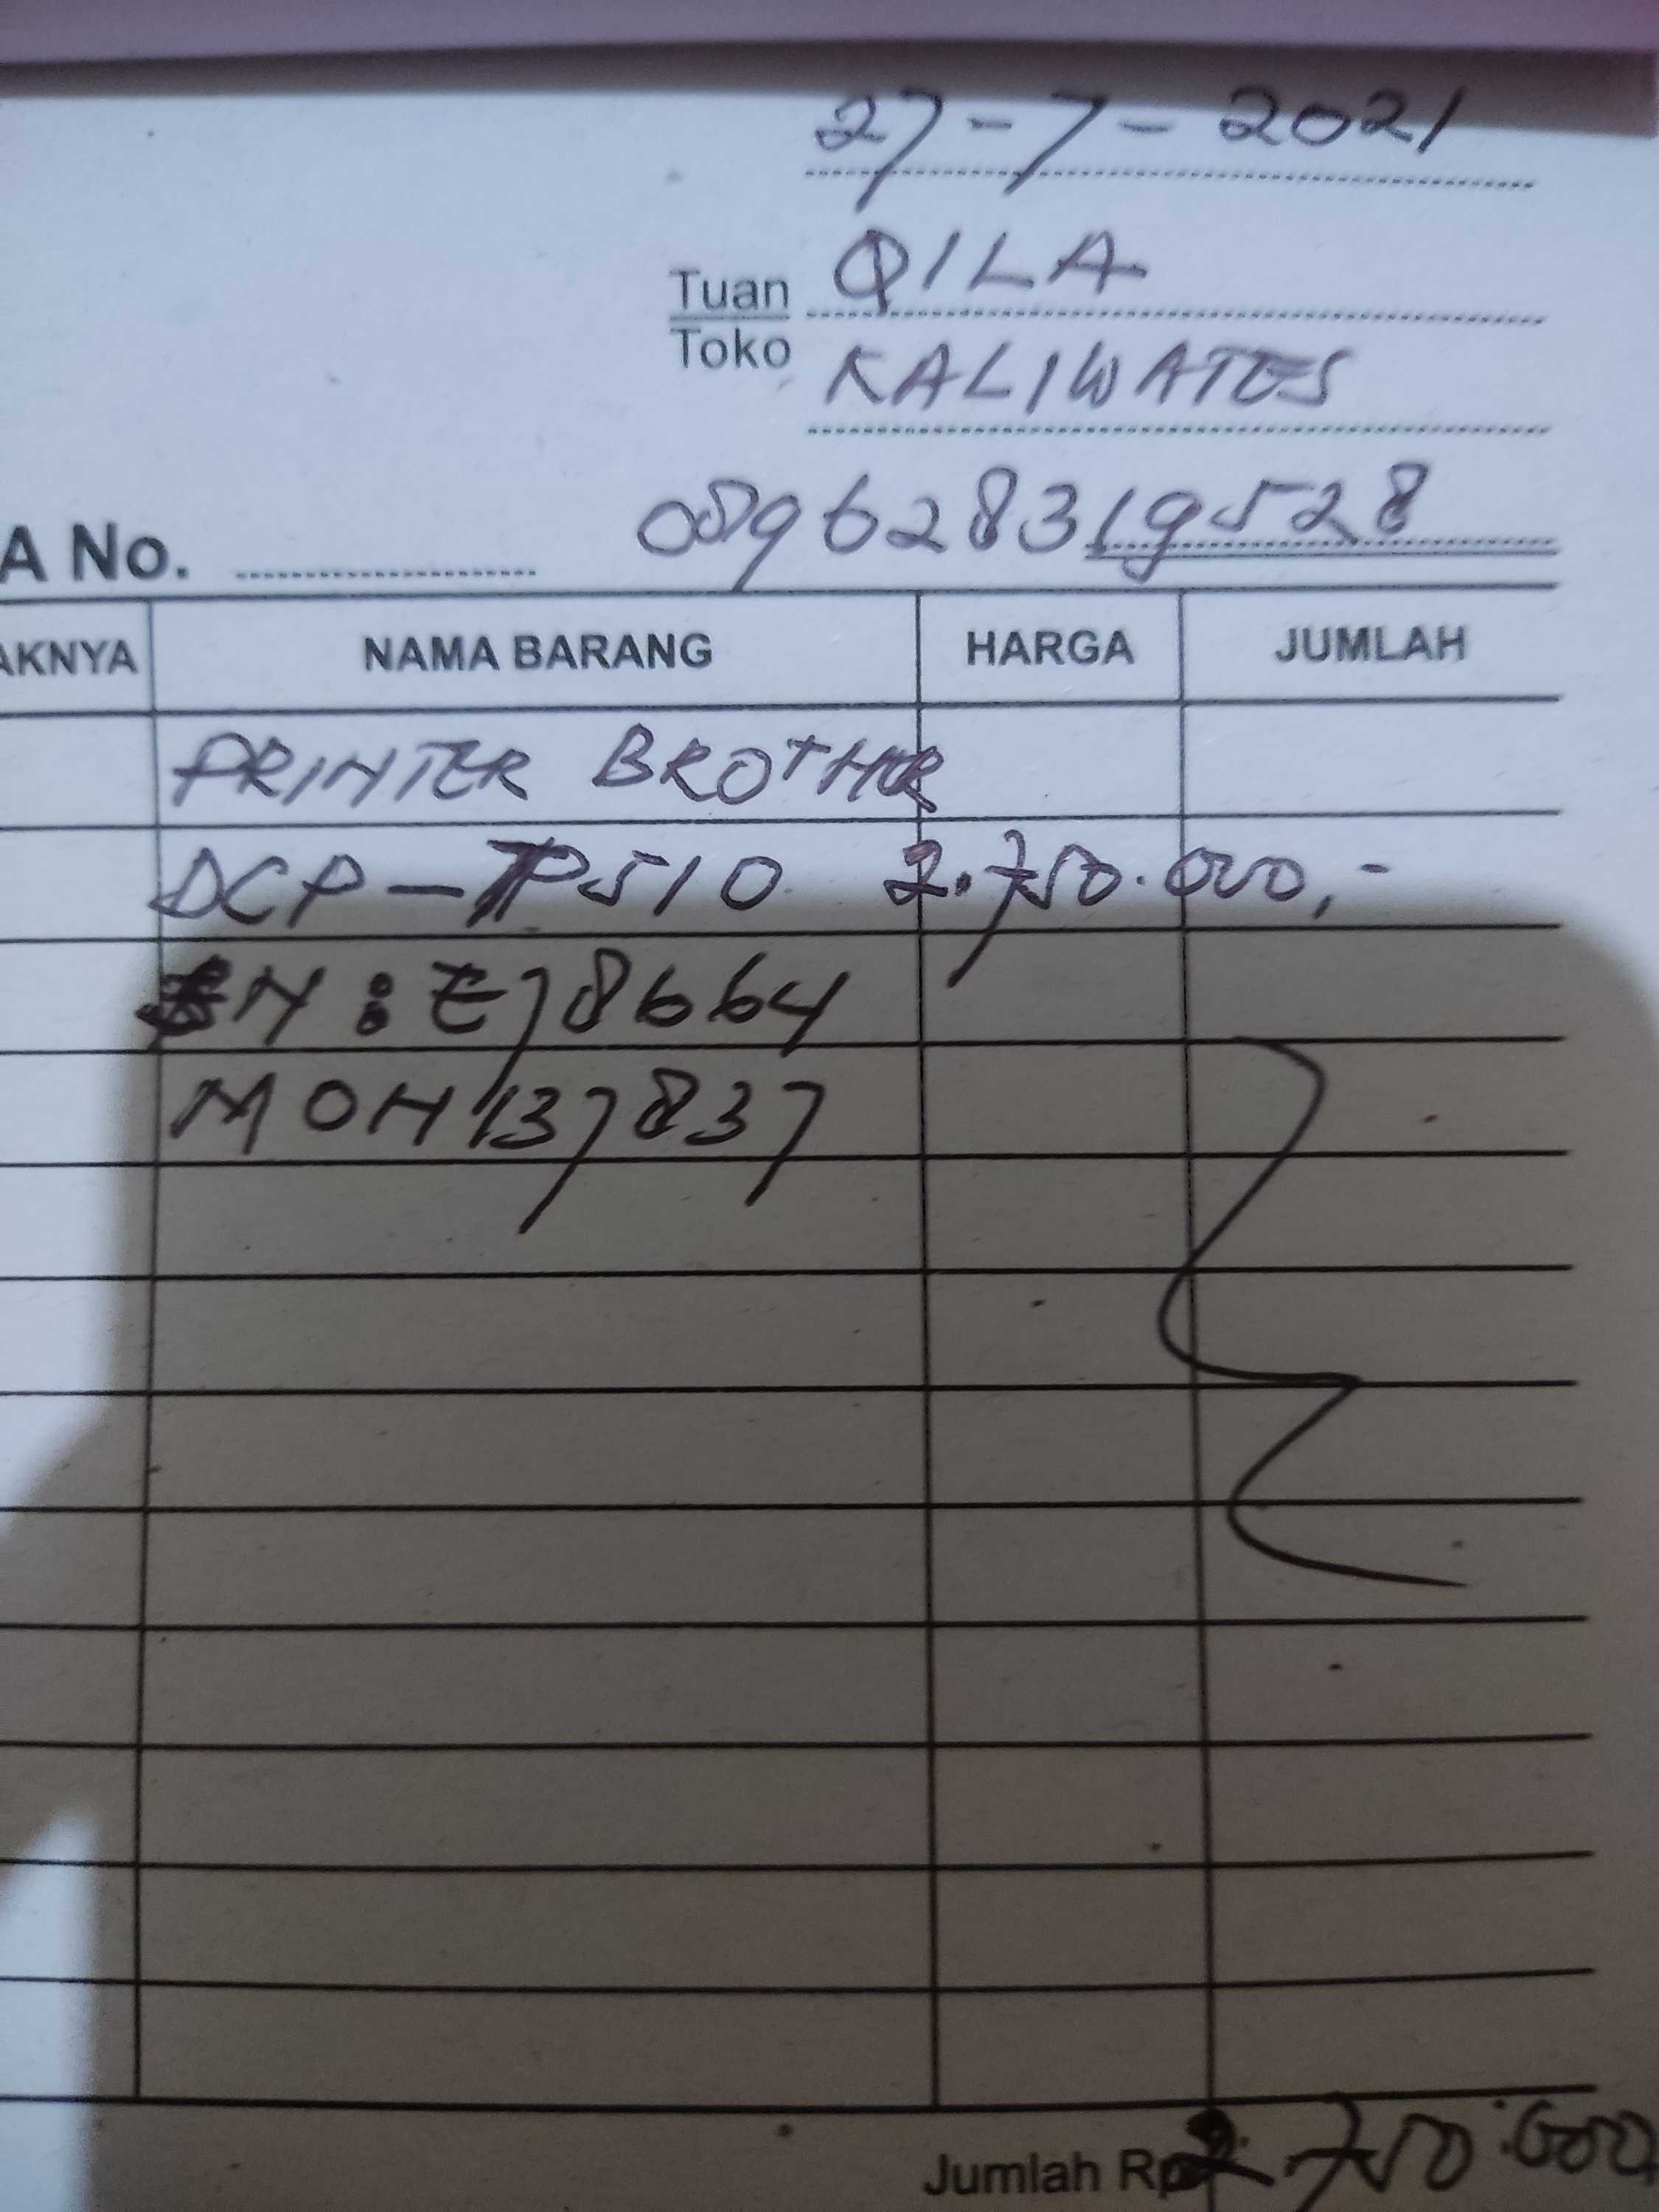 27-7-2021
Tuan QILA
Toko KALIWATES
089628319528
A No.
AKNYA NAMA BARANG HARGA JUMLAH
PRINTER BROTHER
DCP-TP510 2.750.000,-
SN : E78664
MOH137837
Jumlah Rp 2.750.000